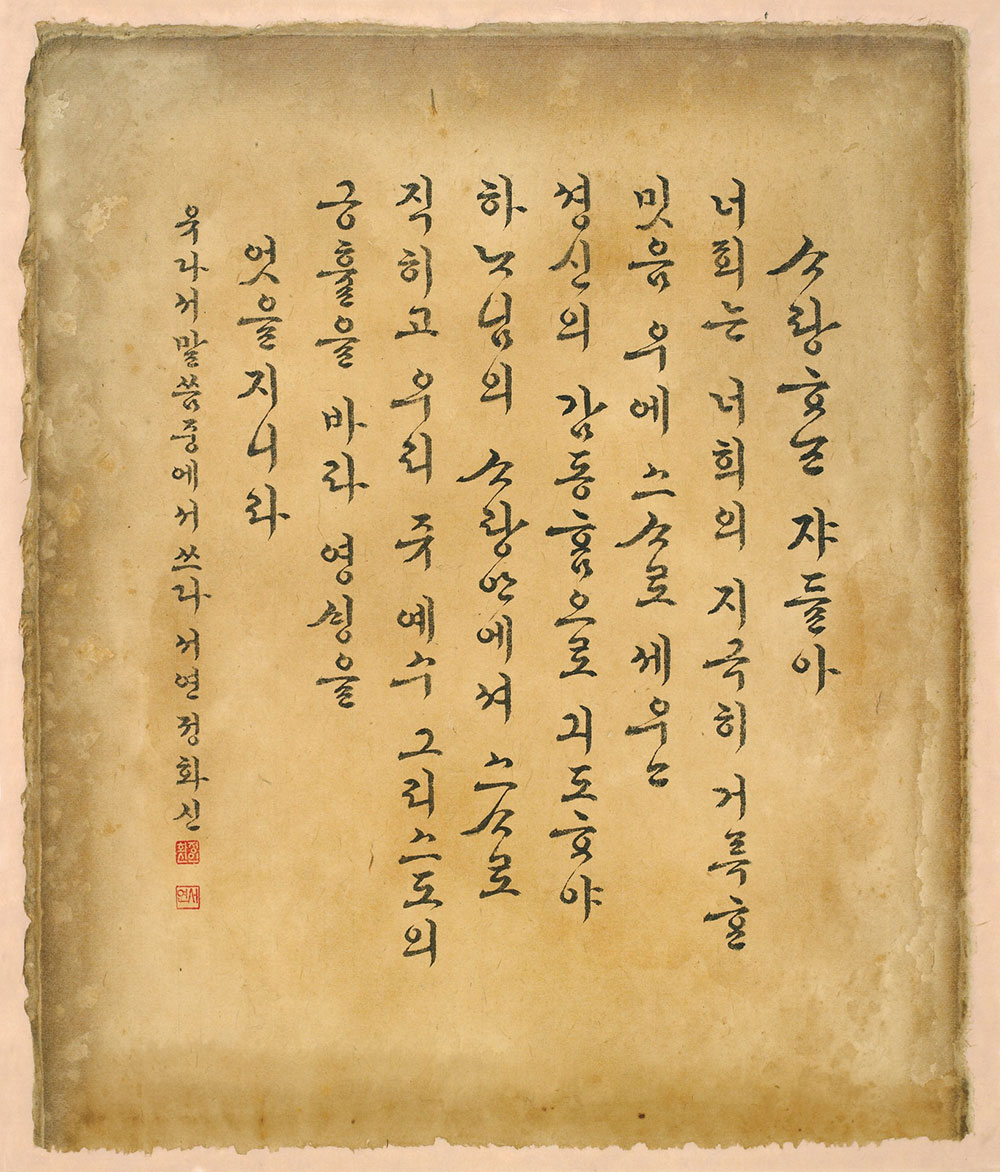 ᄉᆞ랑ᄒᆞᄂᆞᆫ 쟈들아
너희는 너희의 지극히 거륵ᄒᆞᆫ
밋음 우에 스ᄉᆞ로
셩신의 감동ᄒᆞᆷ으로 긔도ᄒᆞ야
하ᄂᆞ님의 ᄉᆞ랑안에셔 스ᄉᆞ로
직히고 우리 쥬 예수 그리스도의
긍휼을 바라 영싱을
엇을지니라
유다서말씀중에서 쓰다 서연 정화신
서연